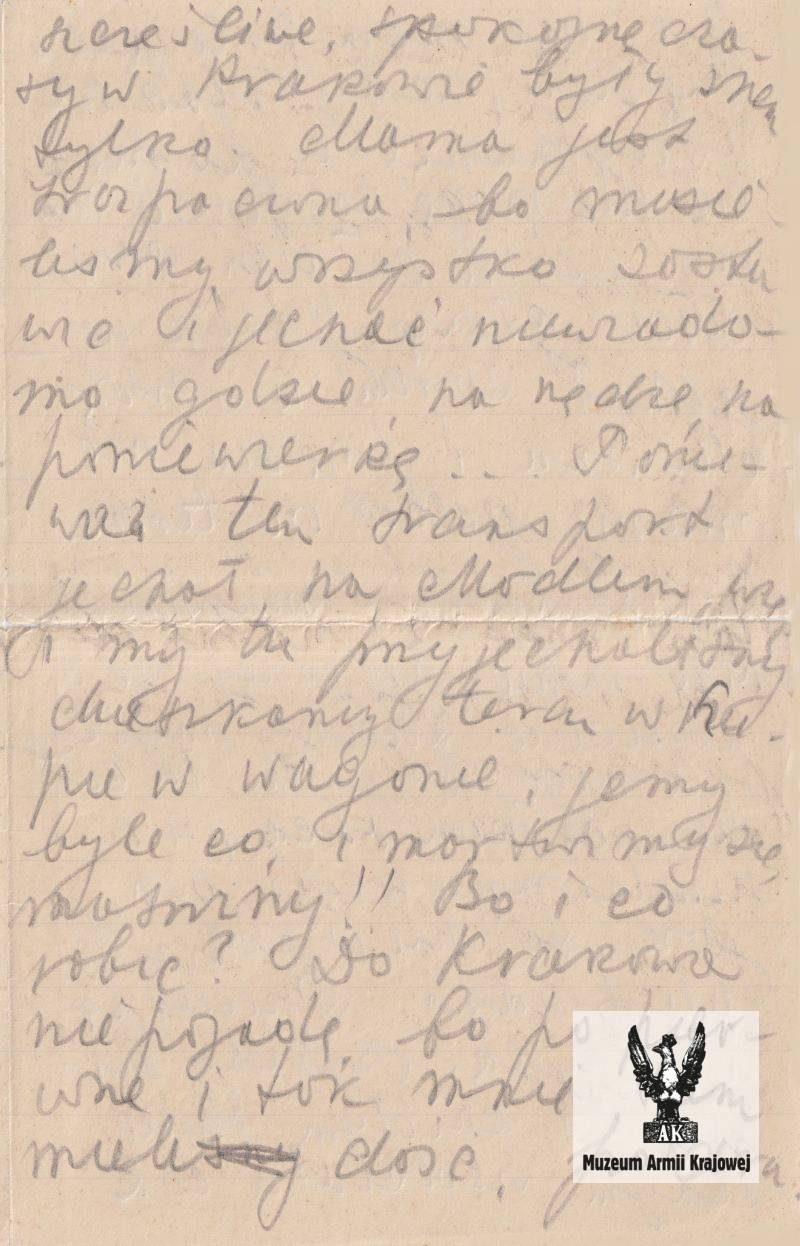 szcześliwe, spokojne cza-
sy w Krakowie były snem
tylko. Mama jest
zrozpaczona, bo musie
liśmy wszystko zosta
wić i jechać niewiado-
mo gdzie, na nędzę, na
poniewierkę... Ponie-
waż ten transport
jechał na Modlin, więc
i my tu przyjechaliśmy
Mieszkamy teraz w ku-
pie w wagonie, jemy
byle co, i martwimy się,
martwimy!! Bo i co
robić? Do Krakowa
nie pojadę, bo po
wne i tak mnie
mieli dość.
AK
Muzeum Armii Krajowej